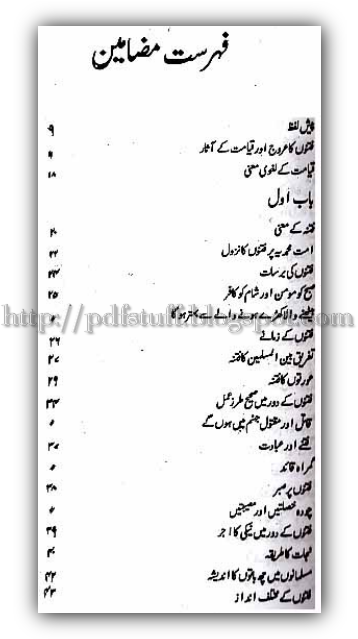 فہرست مضامین
پیش لفظ ۹
فتنوں کا عروج اور قیامت کے آثار ۹
قیامت کے لغوی معنی ۱۸
باب اول
فتنہ کے معنی ۲۰
امت محمدیہ پر فتنوں کا نزول ۲۲
فتنوں کی برسات ۲۳
صبح کو مومن اور شام کو کافر ۲۵
بیٹھنے والا کھڑے ہونے والے سے بہتر ہوگا
http://pdfstuff.blogspot.com
فتنوں کے زمانے ۲۶
تفریق بین المسلمین کا فتنہ ۲۷
عورتوں کا فتنہ ۲۹
فتنوں کے دور میں صحیح طرز عمل ۳۳
قاتل اور مقتول جہنم میں ہوں گے
فتنے اور عبادت ۳۷
گمراہ قائد
فتنوں پر صبر ۳۸
چودہ خصلتیں اور مصیبتیں
فتنوں کے دور میں نیکی کا اجر ۳۹
نجات کا طریقہ ۴۰
مسلمانوں میں چھ باتوں کا اندیشہ ۴۲
فتنوں کے مختلف انداز ۴۳